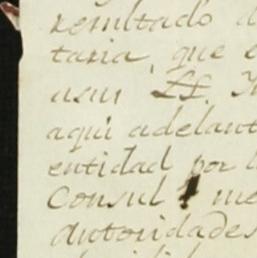 resultado
taria, que
aqui adelant
entidad por l
Consul me
autoridades